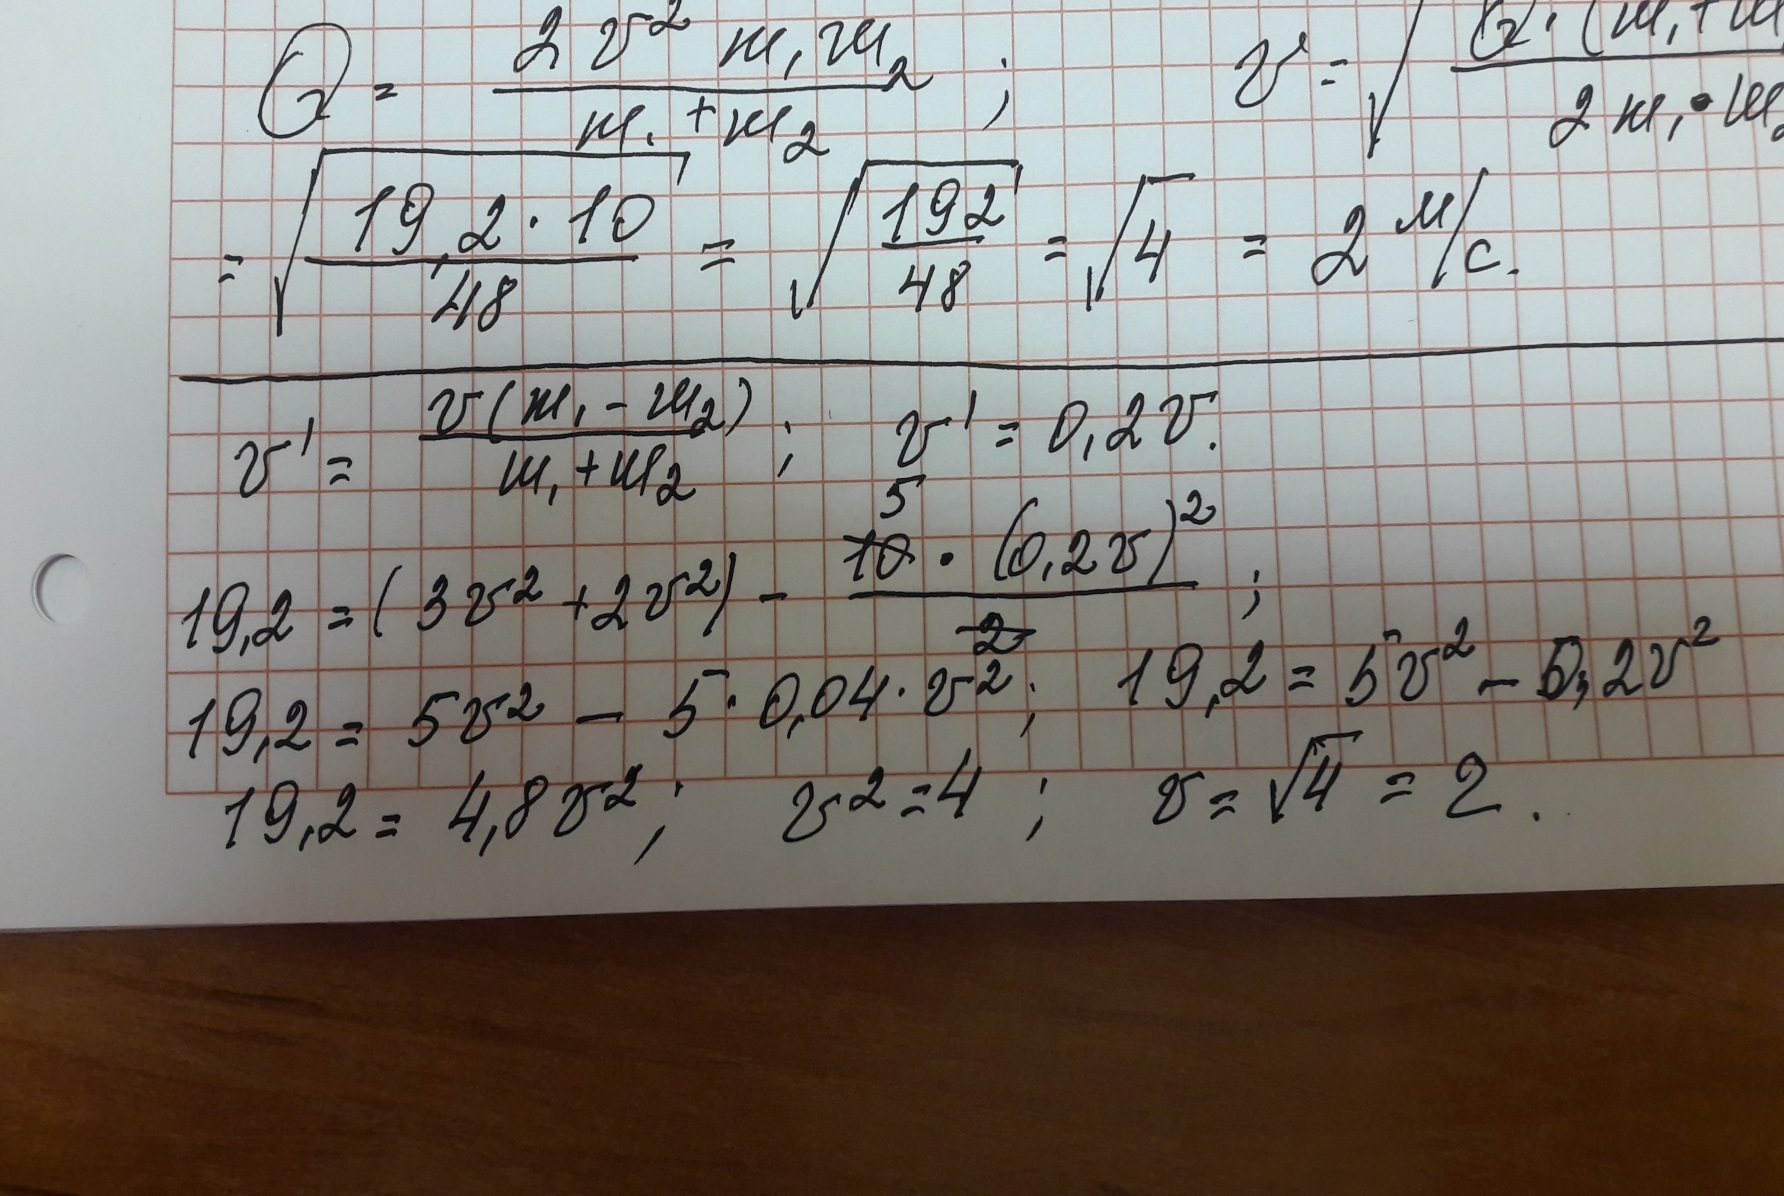 Q = 2v² m₁m₂ / (m₁ + m₂) ; v = √(Q·(m₁+m / 2m₁·m₂
= √(19,2·10 / 48) = √(192 / 48) = √4 = 2 м/с.
v' = v(m₁ - m₂) / (m₁ + m₂) ; v' = 0,2v.
5
19,2 = (3v² + 2v²) - 10·(0,2v)² / 2 ;
19,2 = 5v² - 5·0,04·v² ; 19,2 = 5v² - 0,2v²
19,2 = 4,8v² ; v² = 4 ; v = √4 = 2.